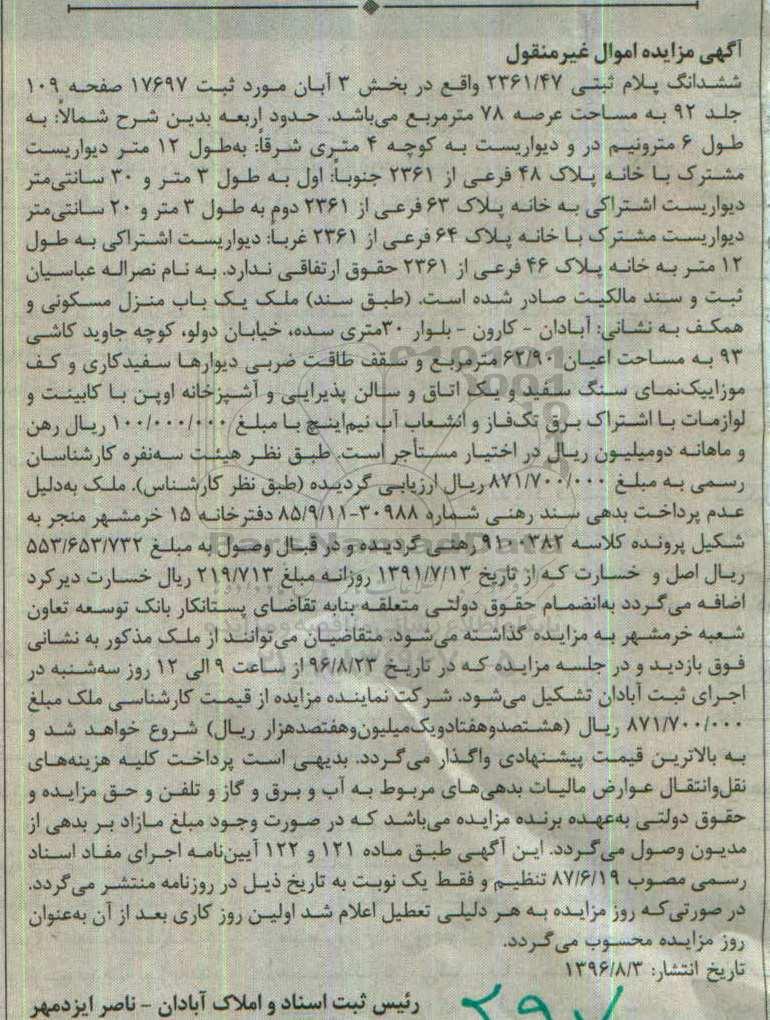 آگهی مزایده اموال غیرمنقول
ششدانگ پلام ثبتی ۲۳۶۱/۴۷ واقع در بخش ۳ آبان مورد ثبت ۱۷۶۹۷ صفحه ۱۰۹
جلد ۹۲ به مساحت عرصه ۷۸ مترمربع می‌باشد. حدود اربعه بدین شرح شمالاً: به
طول ۶ مترونیم در و دیواریست به کوچه ۴ متری شرقاً: به‌طول ۱۲ متر دیواریست
مشترک با خانه پلاک ۴۸ فرعی از ۲۳۶۱ جنوباً: اول به طول ۳ متر و ۳۰ سانتی‌متر
دیواریست اشتراکی به خانه پلاک ۶۳ فرعی از ۲۳۶۱ دوم به طول ۳ متر و ۲۰ سانتی‌متر
دیواریست مشترک با خانه پلاک ۶۴ فرعی از ۲۳۶۱ غرباً: دیواریست اشتراکی به طول
۱۲ متر به خانه پلاک ۴۶ فرعی از ۲۳۶۱ حقوق ارتفاقی ندارد. به نام نصراله عباسیان
ثبت و سند مالکیت صادر شده است. (طبق سند) ملک یک باب منزل مسکونی و
همکف به نشانی: آبادان - کارون - بلوار ۳۰متری سده، خیابان دولو، کوچه جاوید کاشی
۹۳ به مساحت اعیان ۶۲/۹۰ مترمربع و سقف طاقت ضربی دیوارها سفیدکاری و کف
موزاییک‌نمای سنگ سفید و یک اتاق و سالن پذیرایی و آشپزخانه اوپن با کابینت و
لوازمات با اشتراک برق تک‌فاز و انشعاب آب نیم‌اینچ با مبلغ ۱۰۰/۰۰۰/۰۰۰ ریال رهن
و ماهانه دومیلیون ریال در اختیار مستأجر است. طبق نظر هیئت سه‌نفره کارشناسان
رسمی به مبلغ ۸۷۱/۷۰۰/۰۰۰ ریال ارزیابی گردیده (طبق نظر کارشناس). ملک به‌دلیل
عدم پرداخت بدهی سند رهنی شماره ۳۰۹۸۸-۸۵/۹/۱۱ دفترخانه ۱۵ خرمشهر منجر به
شکیل پرونده کلاسه ۹۱۰۰۳۸۲ رهنی گردیده و در قبال وصول به مبلغ ۵۵۳/۶۵۳/۷۳۲
ریال اصل و خسارت که از تاریخ ۱۳۹۱/۷/۱۳ روزانه مبلغ ۲۱۹/۷۱۳ ریال خسارت دیرکرد
اضافه می‌گردد به‌انضمام حقوق دولتی متعلقه بنابه تقاضای پستانکار بانک توسعه تعاون
شعبه خرمشهر به مزایده گذاشته می‌شود. متقاضیان می‌توانند از ملک مذکور به نشانی
فوق بازدید و در جلسه مزایده که در تاریخ ۹۶/۸/۲۳ از ساعت ۹ الی ۱۲ روز سه‌شنبه در
اجرای ثبت آبادان تشکیل می‌شود. شرکت نماینده مزایده از قیمت کارشناسی ملک مبلغ
۸۷۱/۷۰۰/۰۰۰ ریال (هشتصدوهفتادویک‌میلیون‌وهفتصدهزار ریال) شروع خواهد شد و
به بالاترین قیمت پیشنهادی واگذار می‌گردد. بدیهی است پرداخت کلیه هزینه‌های
نقل‌وانتقال عوارض مالیات بدهی‌های مربوط به آب و برق و گاز و تلفن و حق مزایده و
حقوق دولتی به‌عهده برنده مزایده می‌باشد که در صورت وجود مبلغ مازاد بر بدهی از
مدیون وصول می‌گردد. این آگهی طبق ماده ۱۲۱ و ۱۲۲ آیین‌نامه اجرای مفاد اسناد
رسمی مصوب ۸۷/۶/۱۹ تنظیم و فقط یک نوبت به تاریخ ذیل در روزنامه منتشر می‌گردد.
در صورتی‌که روز مزایده به هر دلیلی تعطیل اعلام شد اولین روز کاری بعد از آن به‌عنوان
روز مزایده محسوب می‌گردد.
تاریخ انتشار: ۱۳۹۶/۸/۳
رئیس ثبت اسناد و املاک آبادان - ناصر ایزدمهر
۲۹۷
ParsNamadData